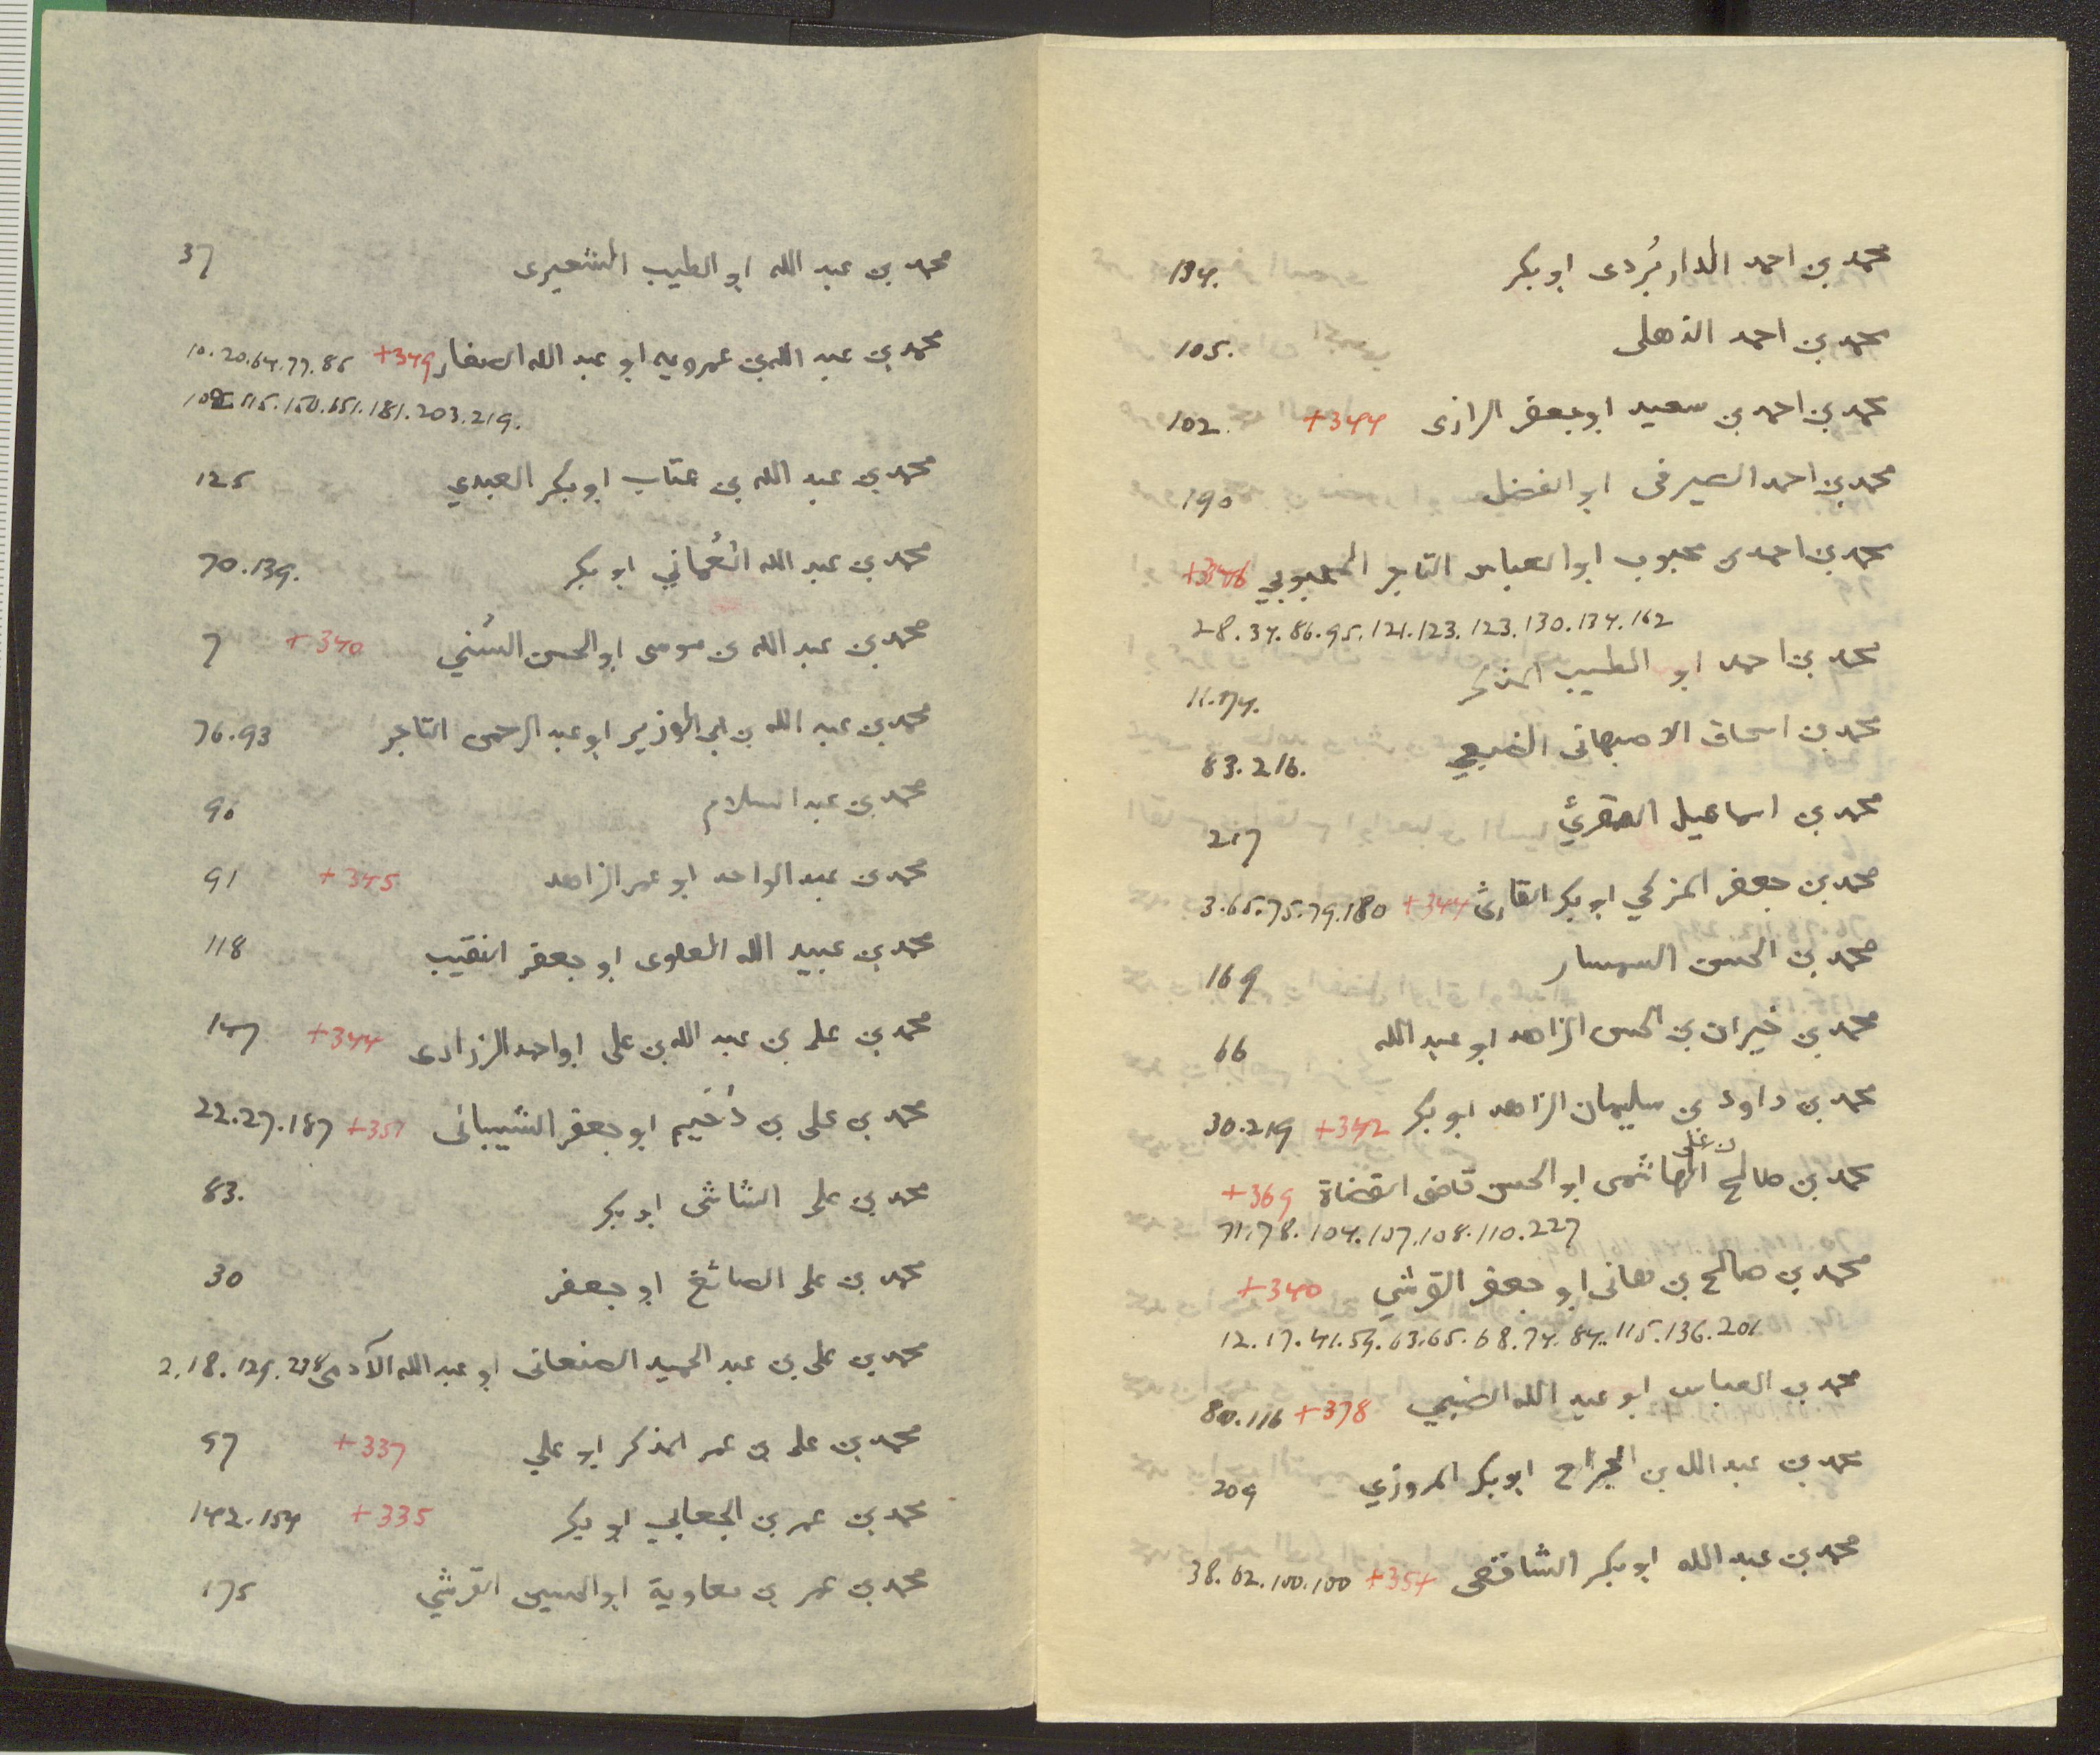 محمد بن احمد الداربُردى ابو بكر 134.
محمد بن احمد الذهلى 105.
محمد بن احمد بن سعيد ابو جعفر الرازى +344 102.
محمد بن احمد الصيرفى ابو الفضل 190
محمد بن احمد بن محبوب ابو العباس التاجر المحبوبي +346
28.34.86.95.121.123.123.130.134.162
محمد بن احمد ابو الطيب المذكر 11.174.
محمد بن اسحاق الاصبهانى الضبعي 83.216.
محمد بن اسماعيل المقرئ 217
محمد بن جعفر المزكي ابو بكر القارئ +344 3.65.75.79.180
محمد بن الحسن السمسار 169
محمد بن خيران بن الحسن الزاهد ابو عبد الله 66
محمد بن داود بن سليمان الزاهد ابو بكر +342 30.219
محمد بن صالح بن على الهاشمى ابو الحسن قاضى القضاة +369
71.78.104.107.108.110.227
محمد بن صالح بن هانى ابو جعفر القرشي +340
12.17.41.59.63.65.68.74.84.115.136.201
محمد بن العباس ابو عبد الله الضبي +378 80.116
محمد بن عبد الله بن الجراح ابو بكر المروزي 209
محمد بن عبد الله ابو بكر الشافعى +354 38.62.100.100
محمد بن عبد الله ابو الطيب الشعيرى 37
محمد بن عبد الله بن عمرويه ابو عبد الله الصفار +349 10.20.64.77.86
115.150.151.181.203.219.
محمد بن عبد الله بن عتاب ابو بكر العبدي 125
محمد بن عبد الله العُماني ابو بكر 70.139.
محمد بن عبد الله بن موسى ابو الحسن السُني +340 7
محمد بن عبد الله بن ابى الوزير ابو عبد الرحمن التاجر 76.93
محمد بن عبد السلام 90
محمد بن عبد الواحد ابو عمر الزاهد +345 91
محمد بن عبيد الله العلوى ابو جعفر النقيب 118
محمد بن على بن عبد الله بن على ابو احمد الرزازى +344 147
محمد بن على بن دُخيم ابو جعفر الشيبانى +351 22.27.187
محمد بن على الشاشى ابو بكر 83.
محمد بن على الصائغ ابو جعفر 30
محمد بن على بن عبد الحميد الصنعانى ابو عبد الله الآدمى 2.18.129.218
محمد بن على بن عمر المذكر ابو علي +337 57
محمد بن عمر بن الجعابي ابو بكر +335 142.154
محمد بن عمر بن معاوية ابو الحسين القرشي 175